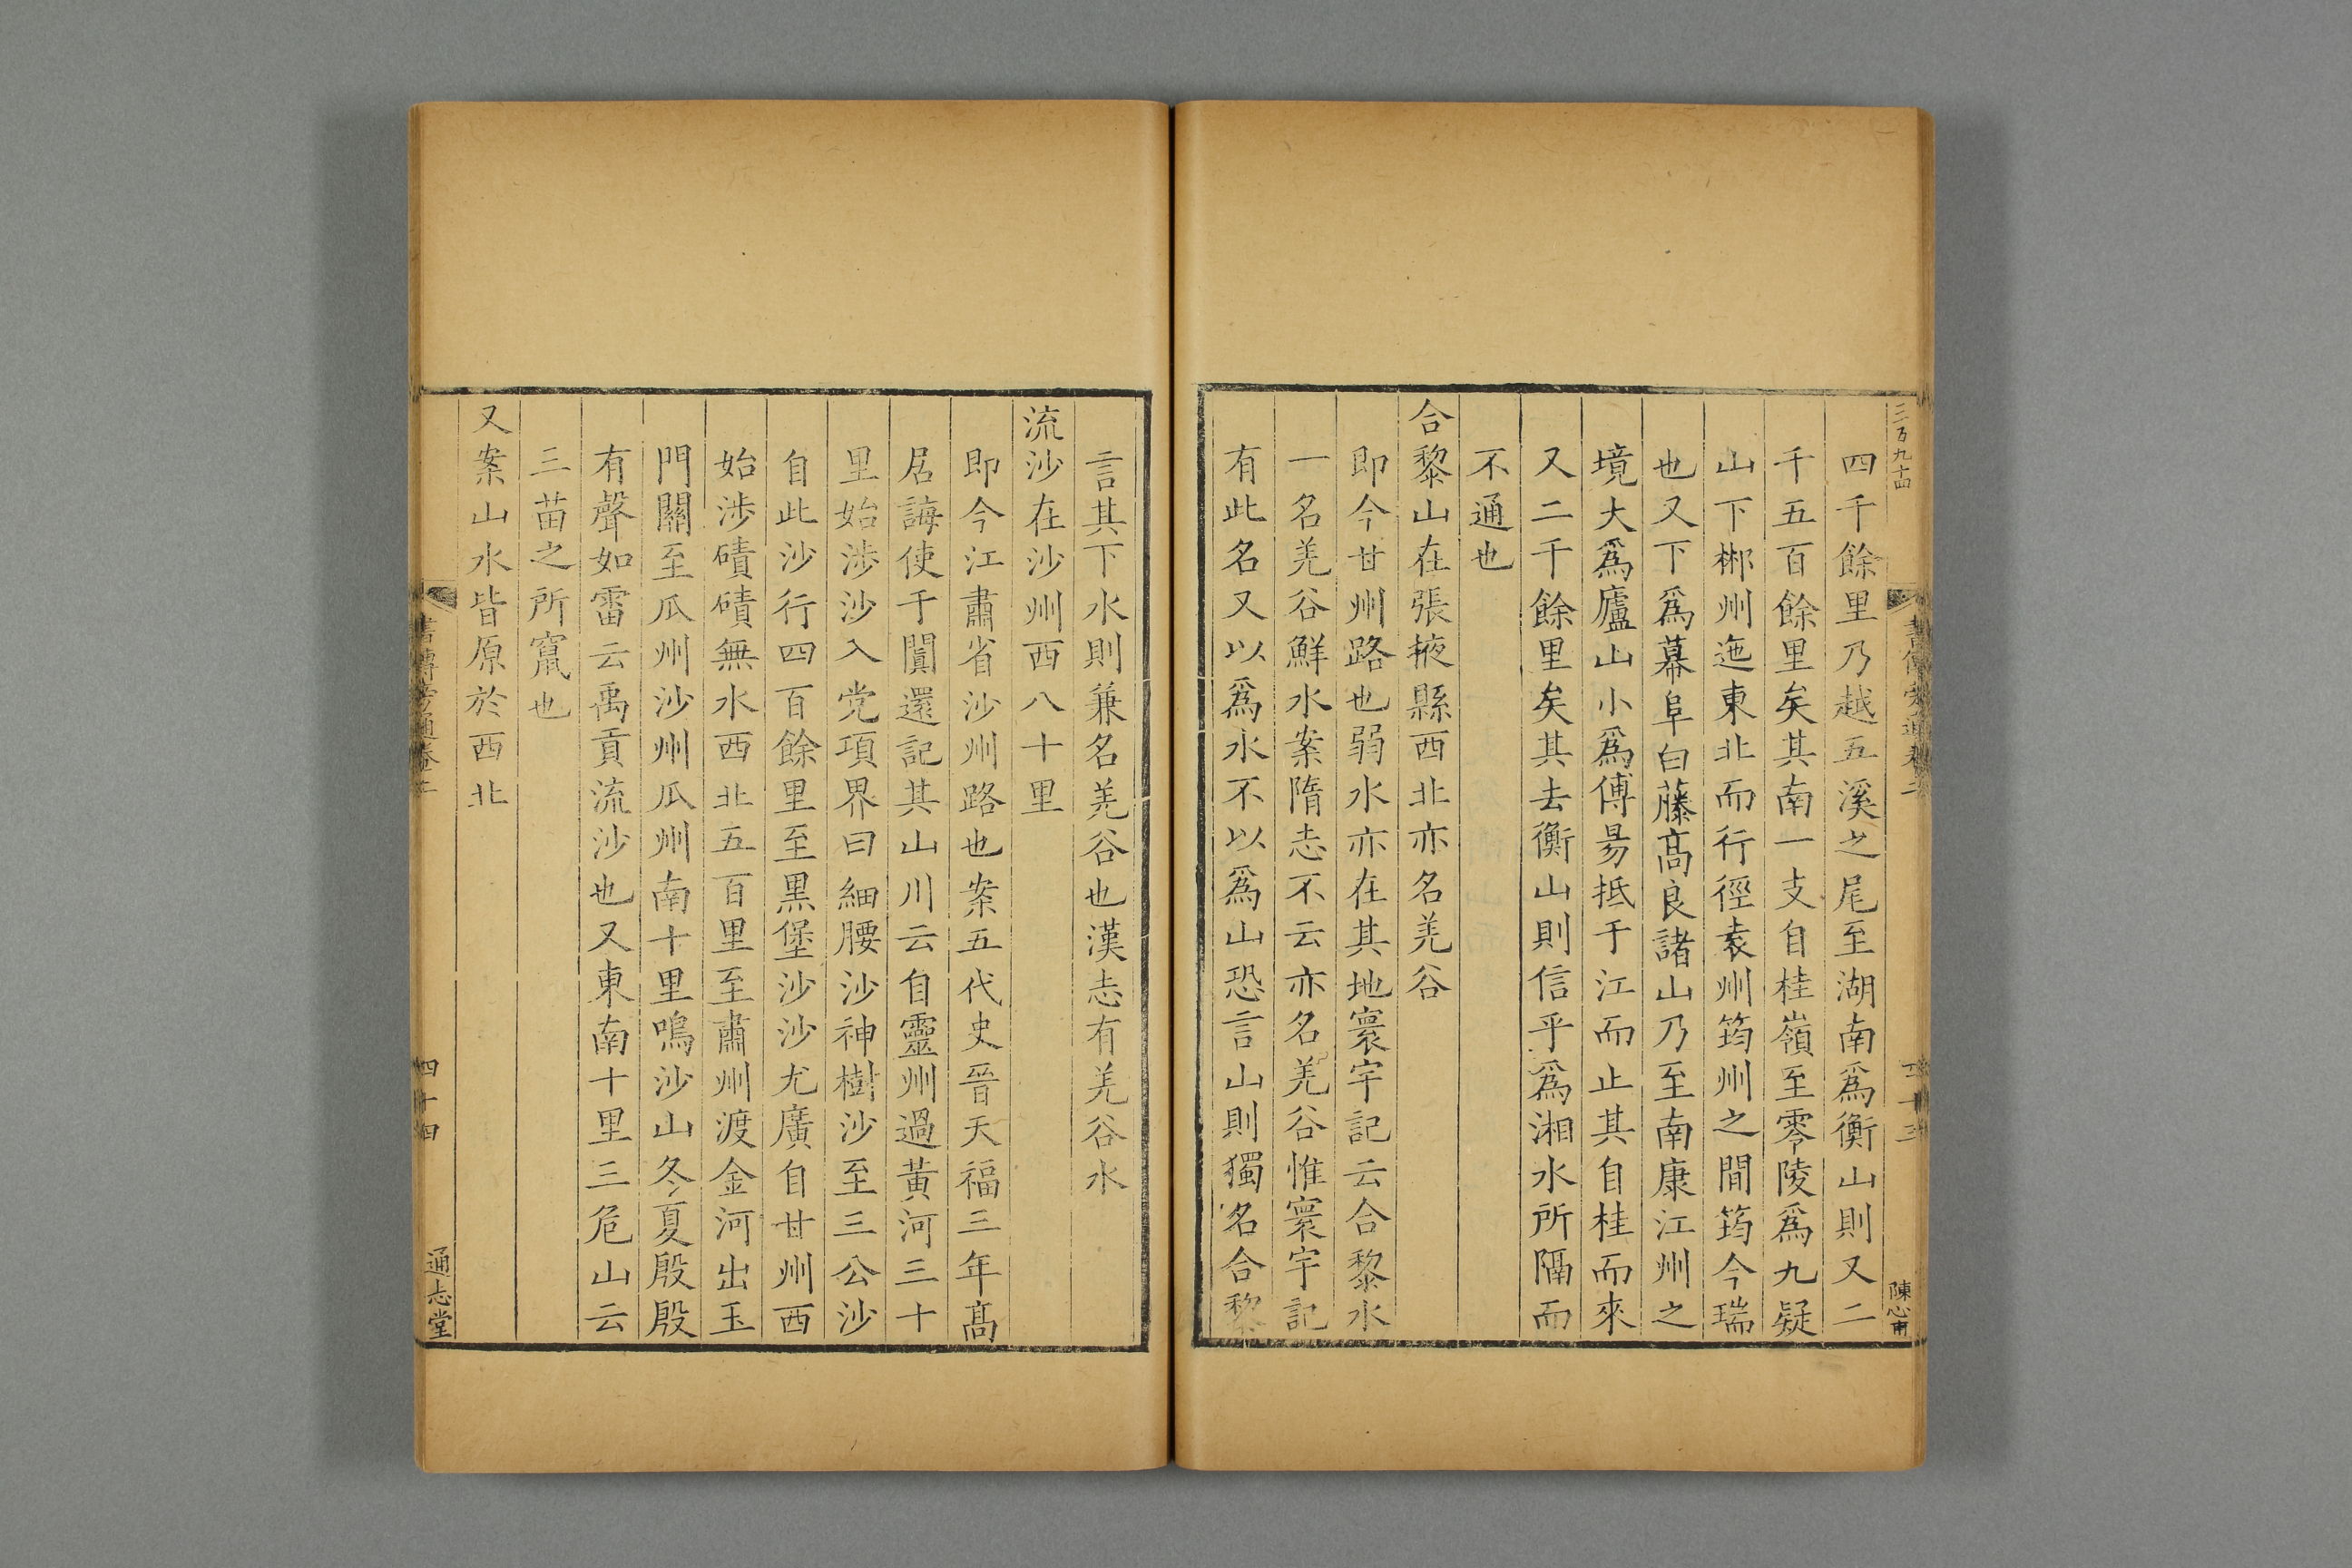 三百九十四
陳心甫
四千餘里乃越五溪之尾至湖南爲衡山則又二
千五百餘里矣其南一支自桂嶺至零陵爲九疑
山下郴州迤東北而行徑袁州筠州之間筠今瑞
也又下爲幕阜曰藤髙良諸山乃至南康江州之
境大爲廬山小爲傅昜抵于江而止其自桂而來
又二千餘里矣其去衡山則信乎爲湘水所隔而
不通也
合黎山在張掖縣西北亦名羌谷
即今甘州路也弱水亦在其地寰宇記云合黎水
一名羌谷鮮水案隋志不云亦名羌谷惟寰宇記
有此名又以爲水不以爲山恐言山則獨名合黎
言其下水則兼名羌谷也漢志有羌谷水
流沙在沙州西八十里
即今江肅省沙州路也案五代史晉天福三年髙
居誨使于闐還記其山川云自靈州過黃河三十
里始涉沙入党項界曰細腰沙神樹沙至三公沙
自此沙行四百餘里至黑堡沙沙尤廣自甘州西
始涉磧磧無水西北五百里至肅州渡金河出玉
門關至瓜州沙州瓜州南十里鳴沙山冬夏殷殷
有聲如雷云禹貢流沙也又東南十里三危山云
三苗之所竄也
又案山水皆原於西北
書傳旁通卷二
四十四
通志堂